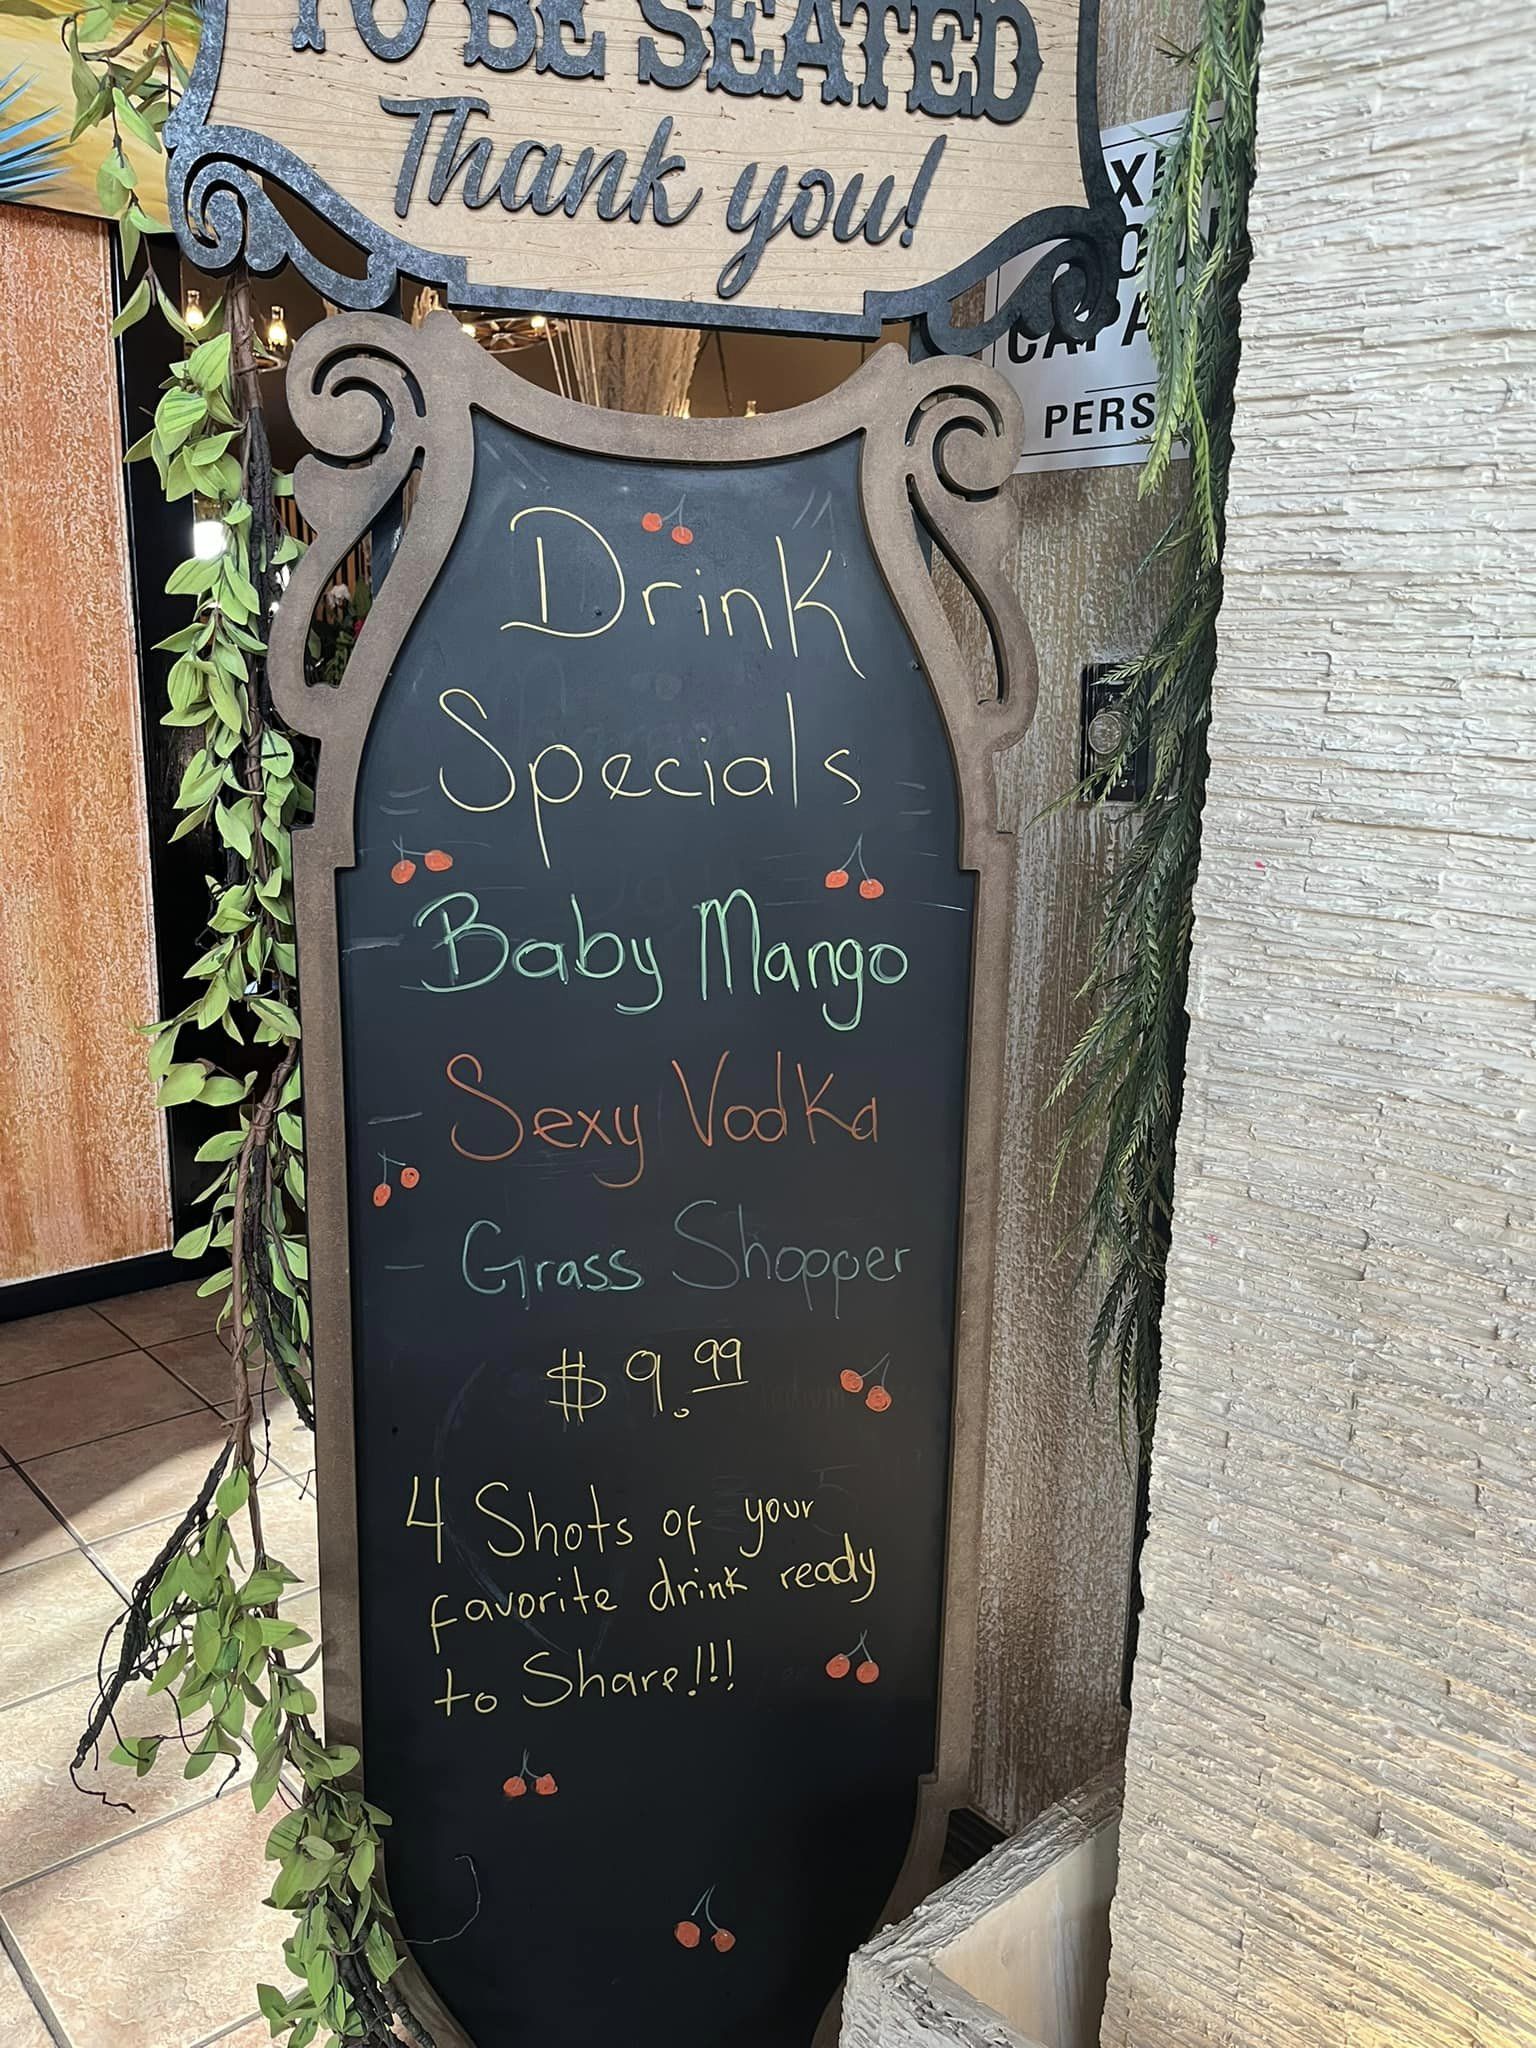 TO BE SEATED
Thank you!
CAPA
PERS
Drink
Specials
- Baby Mango
- Sexy Vodka
- Grass Shopper
$9.99
4 Shots of your
favorite drink ready
to Share!!!